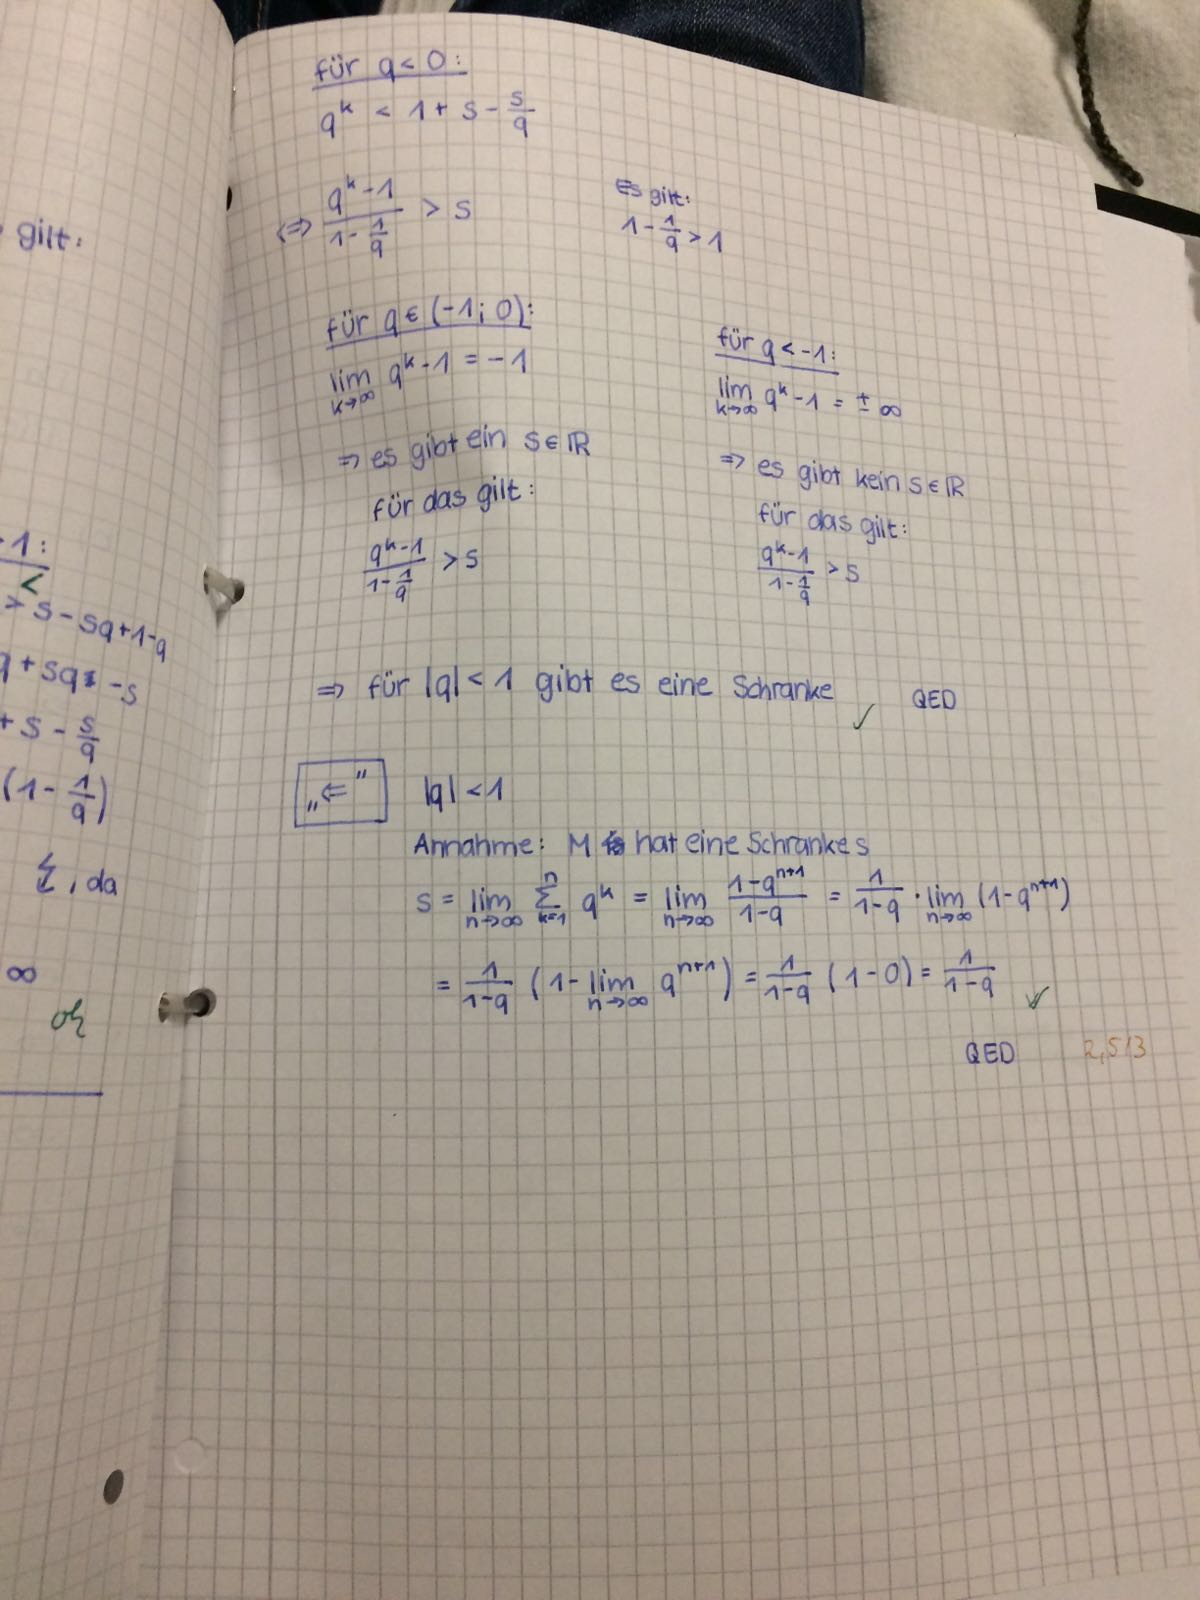 gilt:
1:
<
> s - sq + 1 - q
q + sq - s
+ s - s/q
(1 - 1/q)
↯, da
∞
ok
für q < 0:
q^k < 1 + s - s/q
⇔ (q^k - 1)/(1 - 1/q) > s
Es gilt:
1 - 1/q > 1
für q ∈ (-1; 0):
lim k→∞ q^k - 1 = -1
⇒ es gibt ein s ∈ ℝ
für das gilt:
(q^k - 1)/(1 - 1/q) > s
für q < -1:
lim k→∞ q^k - 1 = ± ∞
⇒ es gibt kein s ∈ ℝ
für das gilt:
(q^k - 1)/(1 - 1/q) > s
⇒ für |q| < 1 gibt es eine Schranke ✓ QED
„⇐" |q| < 1
Annahme: M hat eine Schranke s
s = lim n→∞ ∑ k=1 n q^k = lim n→∞ (1 - q^(n+1))/(1 - q) = 1/(1 - q) · lim n→∞ (1 - q^(n+1))
= 1/(1 - q) (1 - lim n→∞ q^(n+1)) = 1/(1 - q) (1 - 0) = 1/(1 - q) ✓
QED 2,5/3